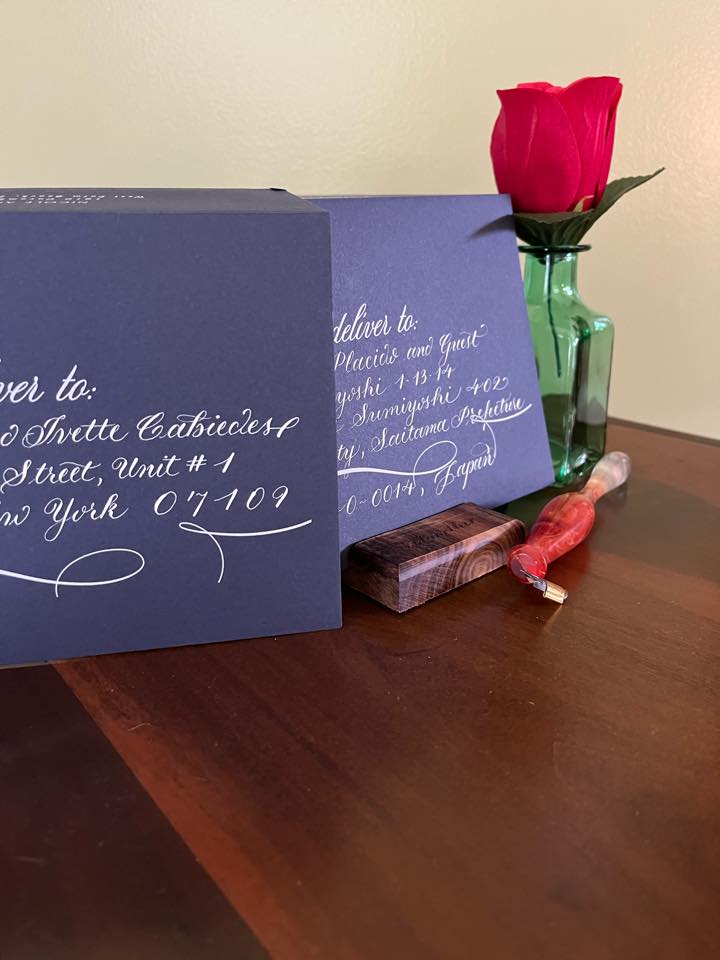 ver to:
Ivette Cabiedes
Street, Unit # 1
York 07109
deliver to:
Placido and Guest
yoshi 1-13-14
Sumiyoshi 402
ty, Saitama Prefecture
0-0014, Japan